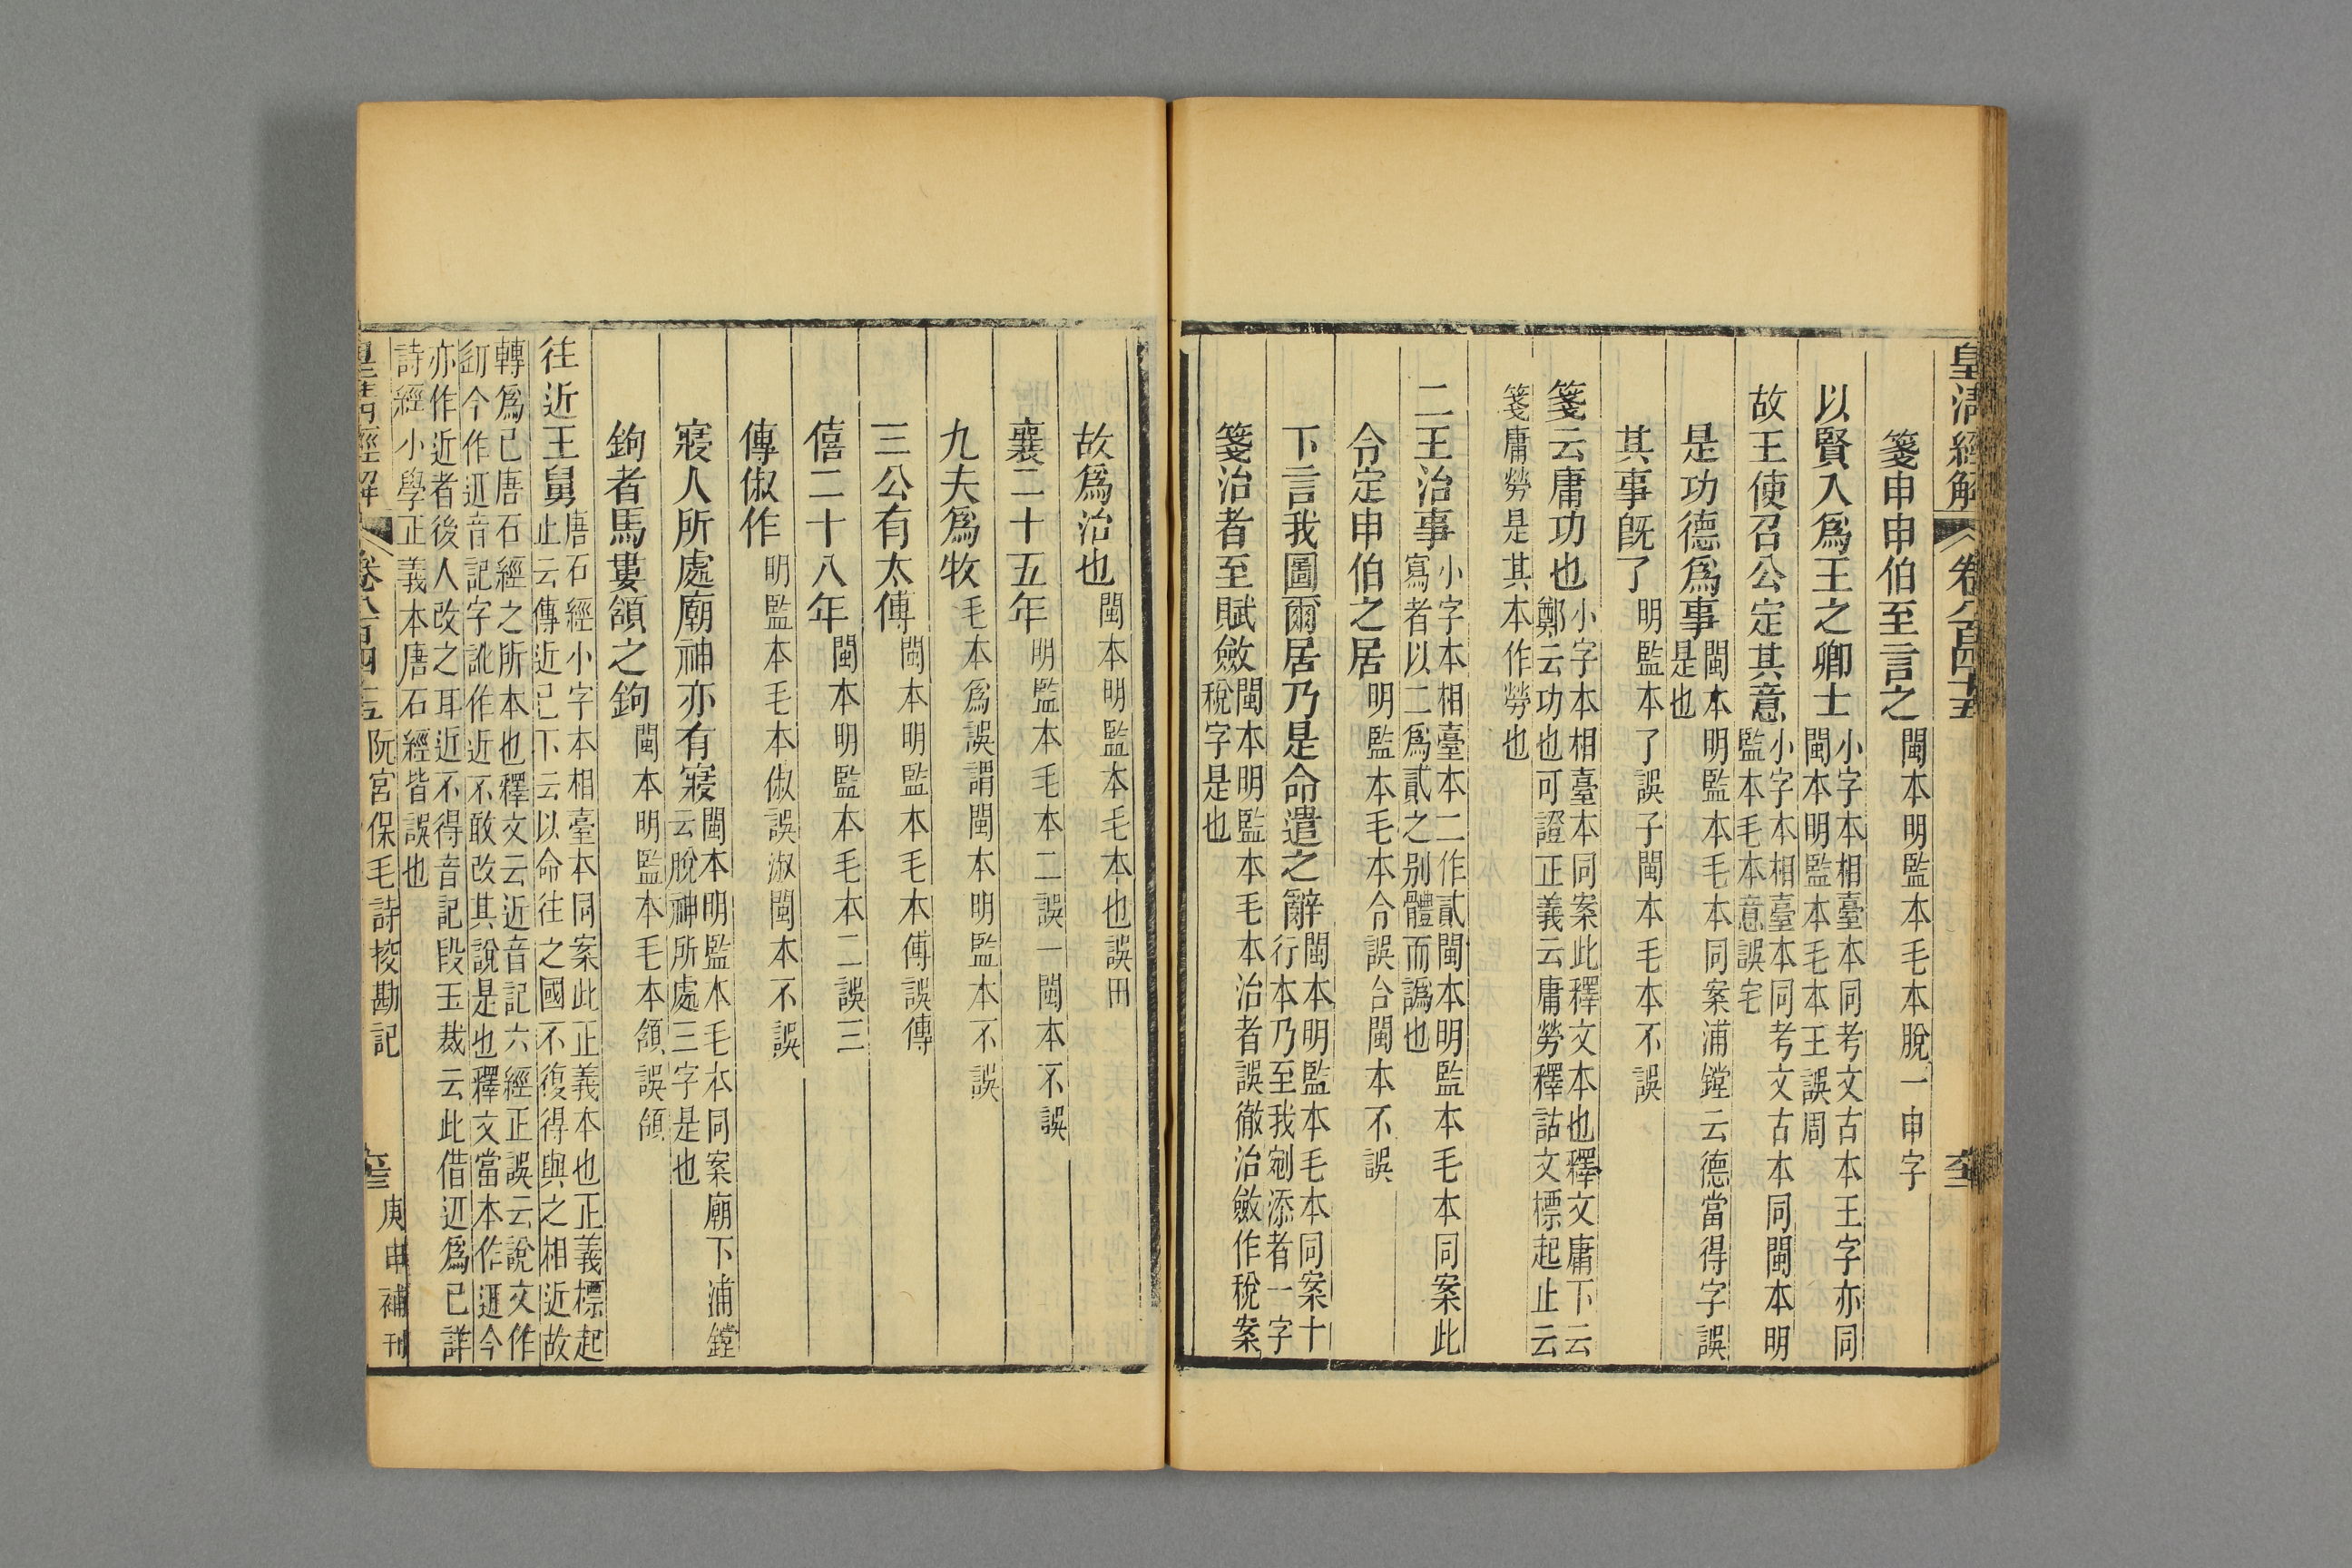 皇淸經解 卷八百四十五
箋申申伯至言之 閩本明監本毛本脫一申字
以賢入爲王之卿士 小字本相臺本同考文古本王字亦同
閩本明監本毛本王誤周
故王使召公定其意 小字本相臺本同考文古本同閩本明
監本毛本意誤宅
是功德爲事 閩本明監本毛本同案浦鏜云德當得字誤
是也
其事旣了 明監本了誤子閩本毛本不誤
箋云庸功也 小字本相臺本同案此釋文本也釋文庸下云
鄭云功也可證正義云庸勞釋詁文標起止云
箋庸勞是其本作勞也
二王治事 小字本相臺本二作貳閩本明監本毛本同案此
寫者以二爲貳之別體而譌也
令定申伯之居 明監本毛本令誤台閩本不誤
下言我圖爾居乃是命遣之辭 閩本明監本毛本同案十
行本乃至我剜添者一字
箋治者至賦斂 閩本明監本毛本治者誤徹治斂作稅案
稅字是也
故爲治也 閩本明監本毛本也誤田
襄二十五年 明監本毛本二誤一閩本不誤
九夫爲牧 毛本爲誤謂閩本明監本不誤
三公有太傅 閩本明監本毛本傅誤傳
僖二十八年 閩本明監本毛本二誤三
傳俶作 明監本毛本俶誤淑閩本不誤
寢人所處廟神亦有寢 閩本明監本毛本同案廟下浦鏜
云脫神所處三字是也
鉤者馬婁頷之鉤 閩本明監本毛本頷誤領
往近王舅 唐石經小字本相臺本同案此正義本也正義標起
止云傳近已下云以命往之國不復得與之相近故
轉爲已唐石經之所本也釋文云近音記六經正誤云說文作
䢋今作辺音記字訛作近不敢改其說是也釋文當本作𨒪今
亦作近者後人改之耳近不得音記段玉裁云此借辺爲已詳
詩經小學正義本唐石經皆誤也
皇淸經解 卷八百四十五 阮宮保毛詩挍勘記 庚申補刊